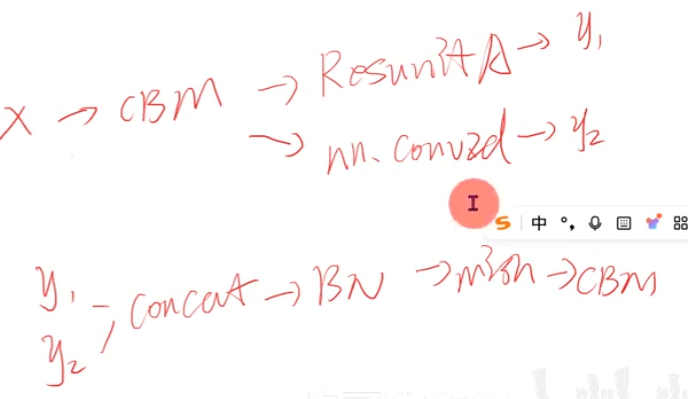 X → CBM → ResunitA → y₁
→ nn.conv2d → y₂
中
y₁
y₂ ; concat → BN → mish → CBM